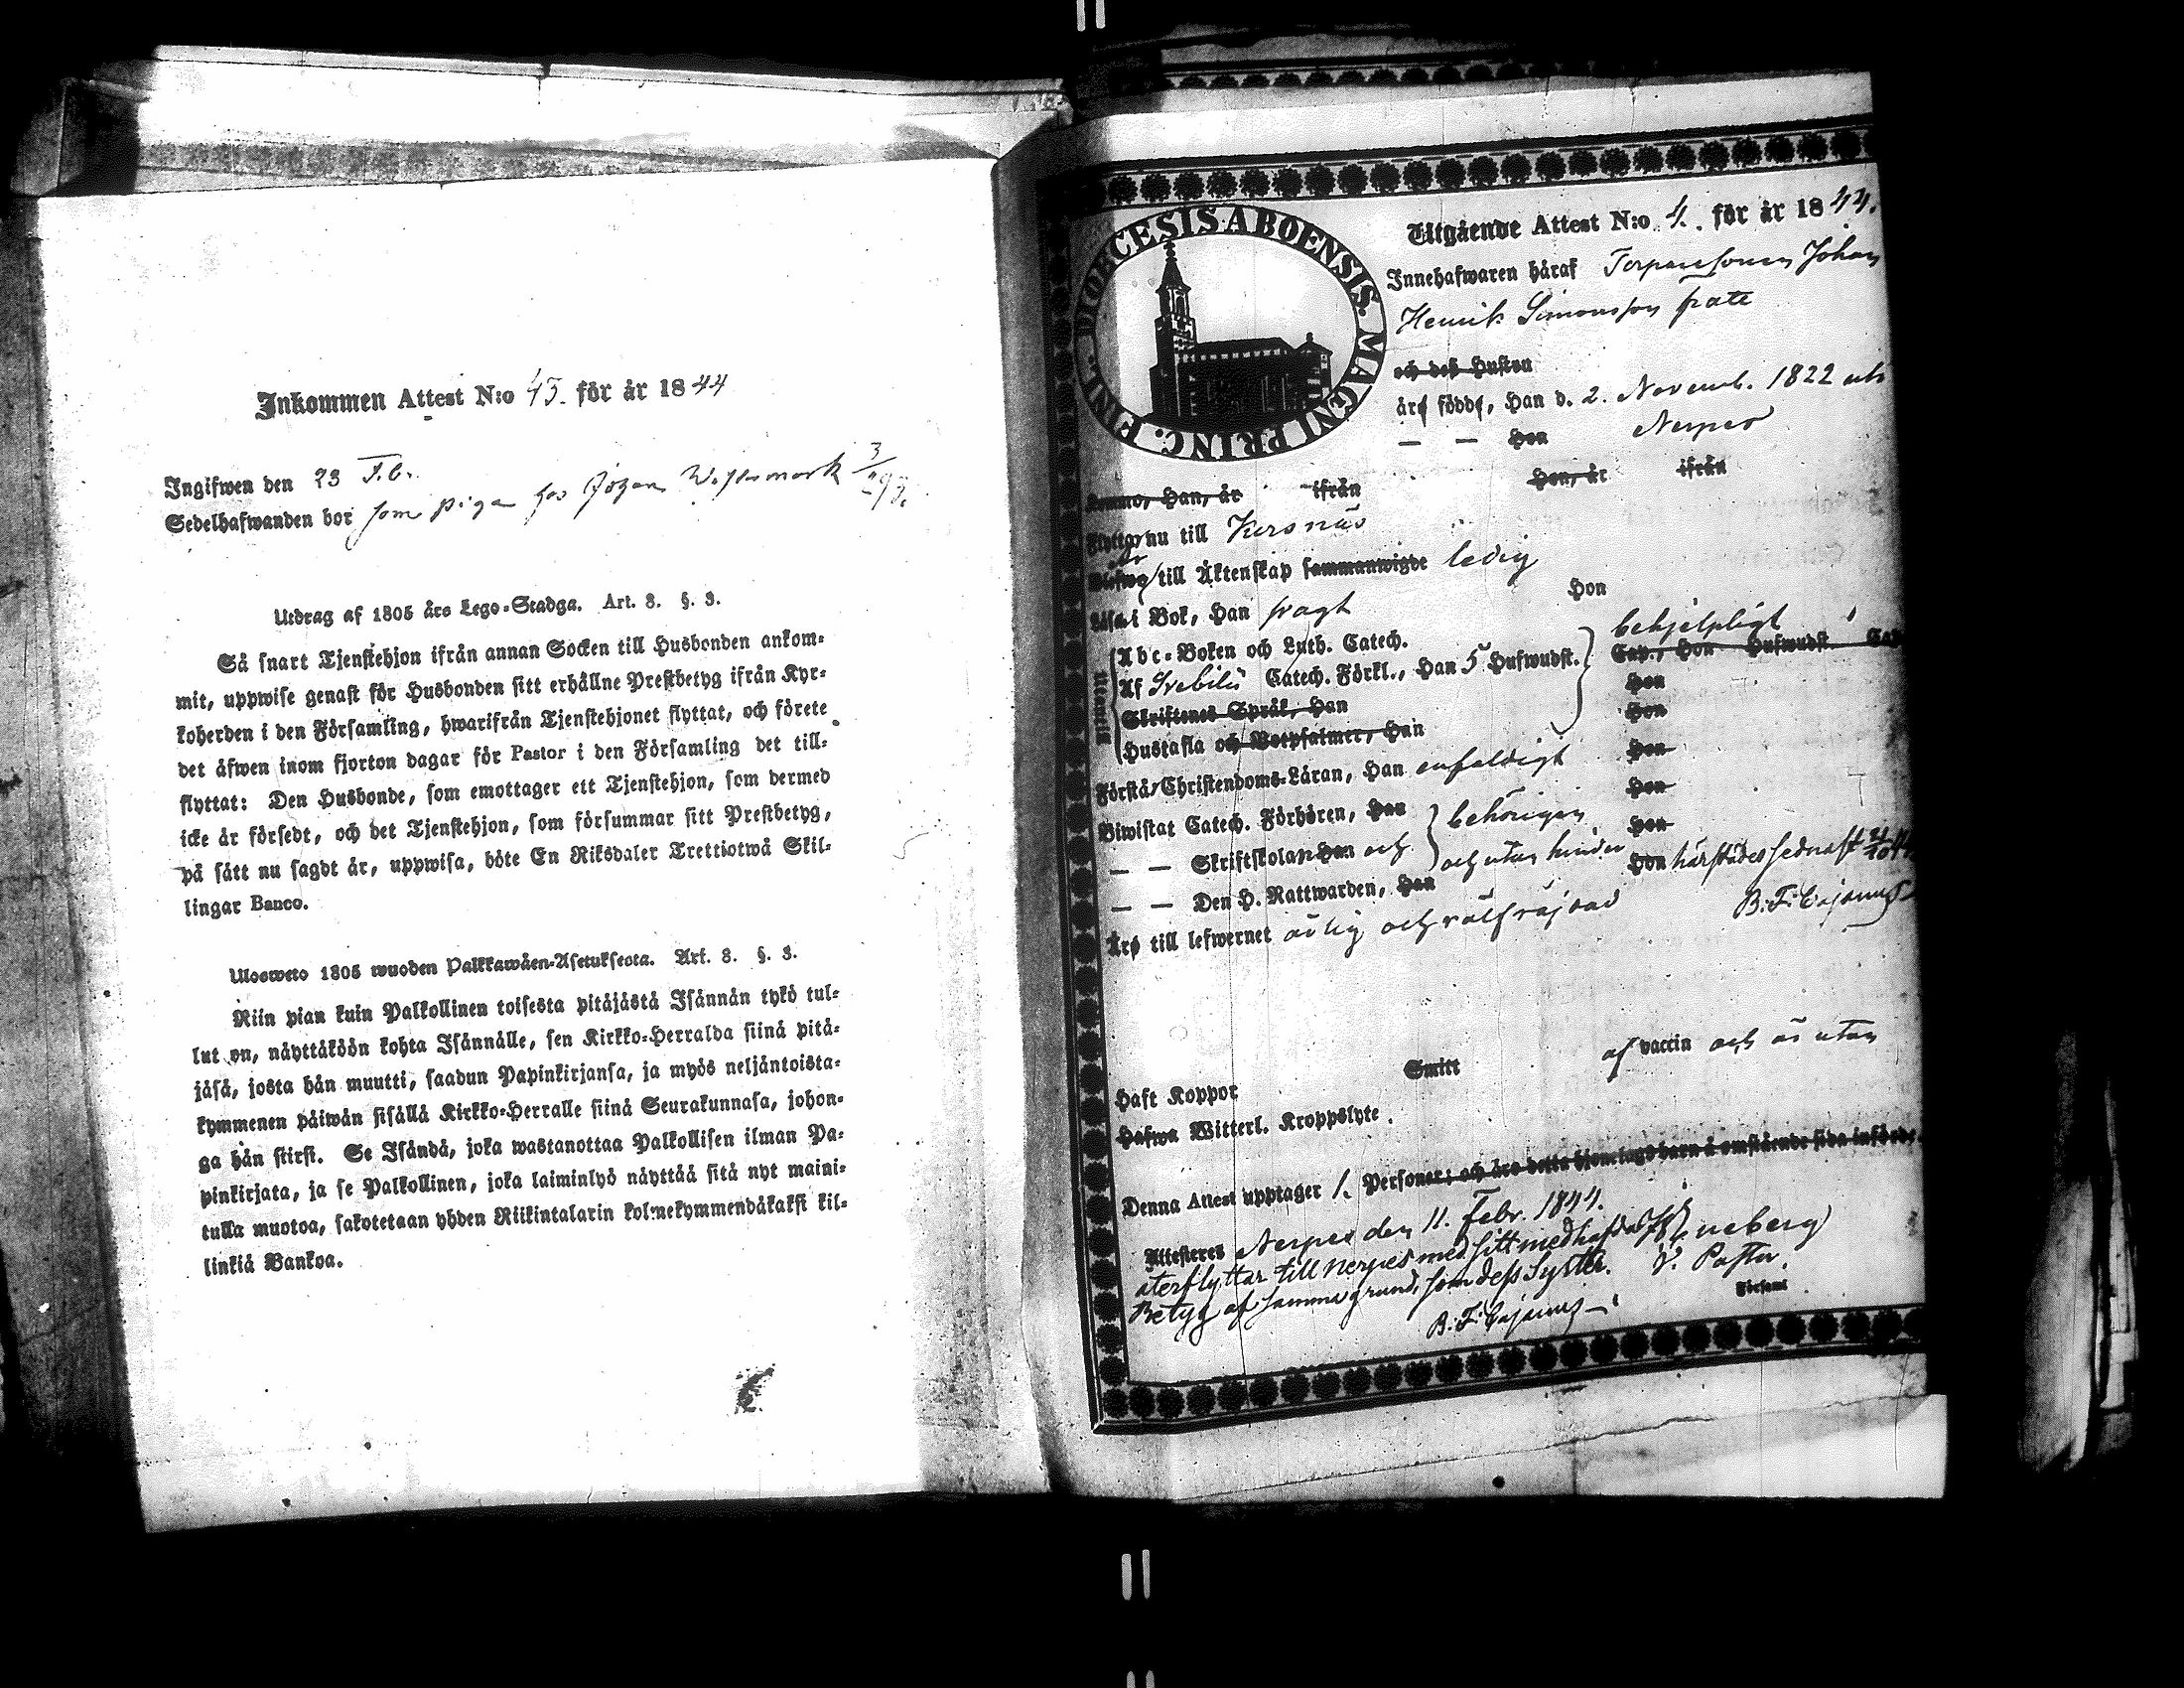 Inkommen Attest N:o 43. för år 1844
Ingifwen den 23 Feb.
Sedelhafwanden bor som piga hos Johan 3/293.
Utdrag af 1805 års Lego-Stadga. Art. 8. §. 3.
Så snart Tjenstehjon ifrån annan Socken till Husbonden ankom-
mit, uppwise genast för Husbonden sitt erhållne Prestbetyg ifrån Kyr-
koherden i den Församling, hwarifrån Tjenstehjonet flyttat, och förete
det äfwen inom fjorton dagar för Pastor i den Församling det till-
flyttat: Den Husbonde, som emottager ett Tjenstehjon, som dermed
icke är försedt, och det Tjenstehjon, som försummar sitt Prestbetyg,
på sätt nu sagdt är, uppwisa, böte En Riksdaler Trettiotwå Skil-
lingar Banco.
Ulosweto 1805 wuoden Palkkawäen-Asetuksesta. Art. 8. §. 3.
Niin pian kuin Palkollinen toisesta pitäjästä Isännän tykö tul-
lut on, näyttäköön kohta Isännälle, sen Kirkko-Herralda siinä pitä-
jäsä, josta hän muutti, saadun Papinkirjansa, ja myös neljäntoista-
kymmenen päiwän sisällä Kirkko-Herralle siinä Seurakunnasa, johon-
ga hän siirsi. Se Isändä, joka wastanottaa Palkollisen ilman Pa-
pinkirjata, ja se Palkollinen, joka laiminlyö näyttää sitä nyt maini-
tulla muotoa, sakotetaan yhden Riikintalarin kolmekymmendäkaksi kil-
linkiä Bankoa.
DIOECESIS ABOENSIS. MAGNI PRINC. FINL.
Utgående Attest N:o 4. för år 1844.
Innehafwaren häraf Torparesonen Johan
Henrik Simonsson
och deß Hustru
äro födde, Han d. 2. Novemb. 1822 uti
— — Hon Nerpes
Komne, Han, år ifrån Hon, år ifrån
Flytta nu till Korsnäs
Blefwo till Äktenskap sammanwigde ledig
Läsa i Bok, Han swagt Hon
Utantill
Abc-Boken och Luth. Catech. behjelpligt
Af Svebilii Catech. Förkl., Han 5 Hufwudst. Cap., Hon Hufwudst. Cap
Skriftenes Språk, Han Hon
Hustafla och Botpsalmer, Han Hon
Förstå Christendoms-Läran, Han enfaldigt Hon
Biwistat Catech. Förhören, Han behörigen Hon
— — Skriftskolan Han och och utan hinder Hon
— — Den H. Nattwarden, Han Hon härstädes sednast
Äro till lefwernet ärlig och wälfräjdad B. F. Cajanus
Haft Koppor Smitt af vaccin och är utan
Hafwa Witterl. Kroppslyte.
Denna Attest upptager 1. Personer; och äro detta hjonelags barn å omstående sida införde.
Attesteras Nerpes den 11. Febr. 1844.
återflyttar till Nerpes med sitt medhafda
Betyg af samma grund, som deß Syster. V. Pastor.
B. F. Cajanus Församl